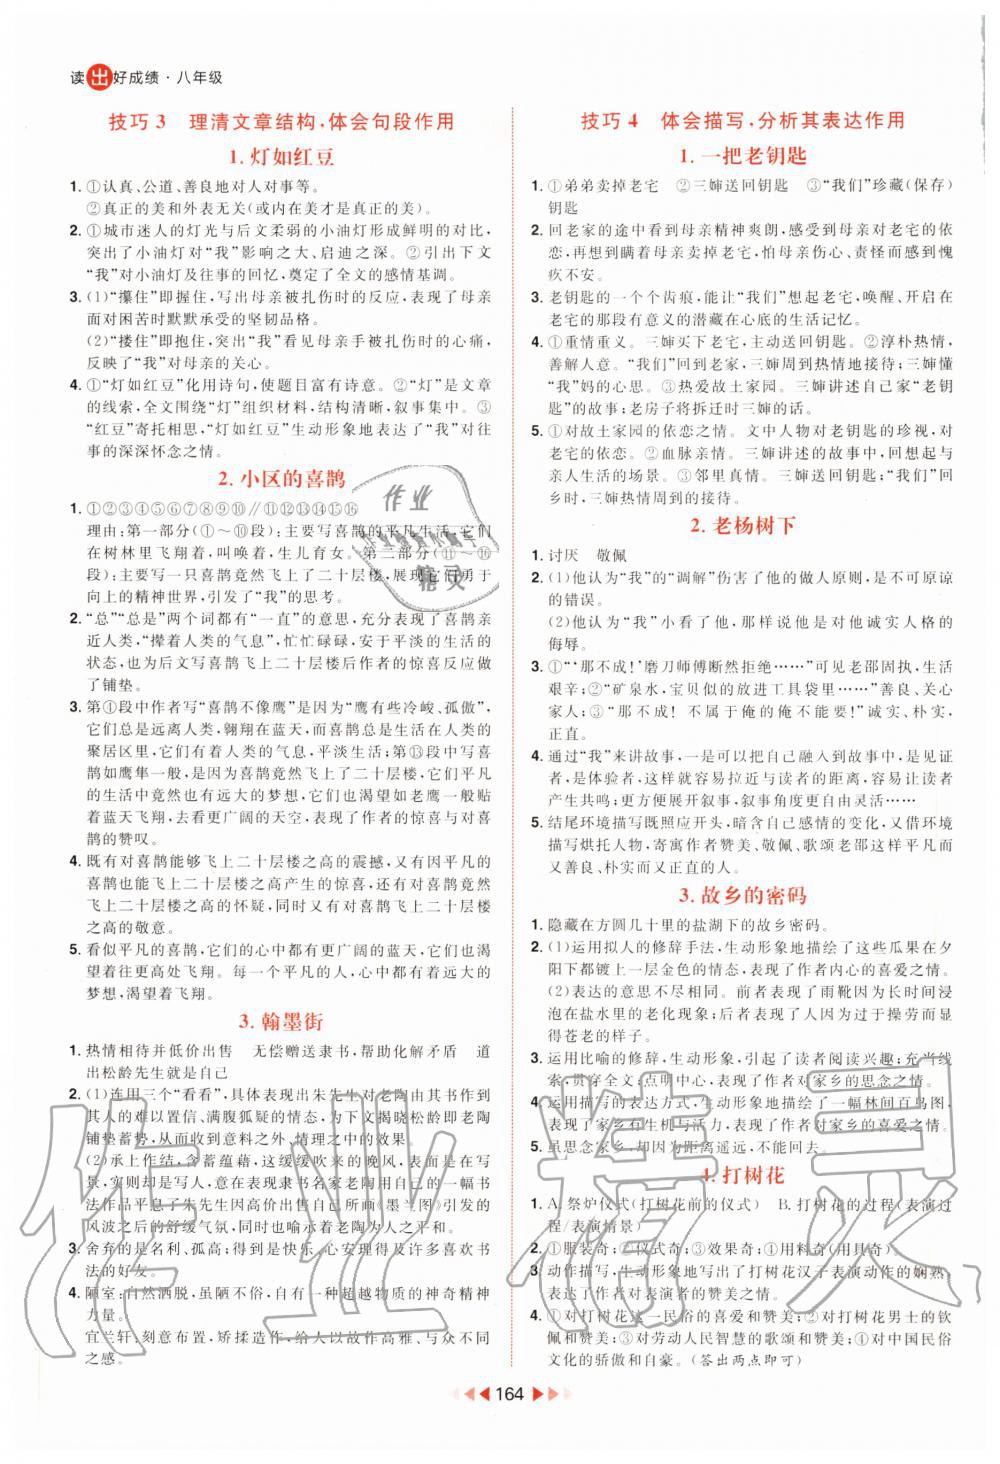 读出好成绩·八年级
技巧3 理清文章结构,体会句段作用
1. 灯如红豆
1. ①认真、公道、善良地对人对事等。
②真正的美和外表无关(或内在美才是真正的美)。
2. ①城市迷人的灯光与后文柔弱的小油灯形成鲜明的对比,
突出了小油灯对“我”影响之大、启迪之深。②引出下文
“我”对小油灯及往事的回忆,奠定了全文的感情基调。
3. (1)“攥住”即握住,写出母亲被扎伤时的反应,表现了母亲
面对困苦时默默承受的坚韧品格。
(2)“搂住”即抱住,突出“我”看见母亲手被扎伤时的心痛,
反映了“我”对母亲的关心。
4. ①“灯如红豆”化用诗句,使题目富有诗意。②“灯”是文章
的线索,全文围绕“灯”组织材料,结构清晰,叙事集中。③
“红豆”寄托相思,“灯如红豆”生动形象地表达了“我”对往
事的深深怀念之情。
2. 小区的喜鹊
1. ①②③④⑤⑥⑦⑧⑨⑩∥⑪⑫⑬⑭⑮⑯
理由:第一部分(①～⑩段):主要写喜鹊的平凡生活,它们
在树林里飞翔着,叫唤着,生儿育女。第二部分(⑪～⑯
段):主要写一只喜鹊竟然飞上了二十层楼,展现它们勇于
向上的精神世界,引发了“我”的思考。
2. “总”“总是”两个词都有“一直”的意思,充分表现了喜鹊亲
近人类,“撵着人类的气息”,忙忙碌碌,安于平淡的生活的
状态,也为后文写喜鹊飞上二十层楼后作者的惊喜反应做
了铺垫。
3. 第①段中作者写“喜鹊不像鹰”是因为“鹰有些冷峻、孤傲”,
它们总是远离人类,翱翔在蓝天,而喜鹊总是生活在人类的
聚居区里,它们有着人类的气息,平淡生活;第⑬段中写喜
鹊如鹰隼一般,是因为这些喜鹊竟然飞上二十层楼,平凡的
它们也有着远大的梦想,它们也渴望如老鹰一般贴
着蓝天飞翔,奔着更广阔的天空,表现了作者的惊喜与对喜
鹊的赞叹。
4. 既有对喜鹊能够飞上二十层楼之高的震撼,又有因平凡的
喜鹊也能飞上二十层楼之高产生的惊喜,还有对喜鹊竟然
能飞二十层楼之高的怀疑,同时又有对喜鹊飞上二十层楼
之高的敬意。
5. 看似平凡的喜鹊,它们的心中都有更广阔的蓝天,它们也渴
望着往更高处飞翔。它们的心中都有更广阔的天地、远大的
梦想,渴望着飞翔。
3. 翰墨街
1. 热情相待并低价出售 无偿赠送隶书,帮助化解矛盾 道
出松龄先生就是自己
2. (1)连用三个“看看”,具体表现出朱先生对老陶由怀疑到
其人的难以置信、满腹狐疑的情态,为下文揭晓松龄即老陶
铺垫蓄势,从而收到意料之外、情理之中的效果
(2)承上作结,含蓄蕴藉,这缓缓吹来的晚风,表面上是写
景,实则却是写人,写因为在意隶书名家老陶用自己的一幅书
法作品平息了朱先生因高价出售自己所画《墨兰图》引发的
风波之后的舒缓气氛,同时暗示着老陶为人之平和。
3. 舍弃的是名利、孤高;得到是快乐、心安理得及许多喜欢书
法的好友。
4. 陋室:自然洒脱,虽陋不俗,自有一种超越物质的神奇精神
力量。
宜兰轩:刻意布置,矫揉造作,给人以故作高雅、与众不同
之感。
技巧4 体会描写,分析其表达作用
1. 一把老钥匙
1. ①弟弟卖掉老宅 ②三婶送回钥匙 ③“我们”珍藏(保存)
钥匙
2. 回老家的途中看到母亲精神爽朗,感受到母亲对老宅的依
恋,再想到瞒着母亲卖掉老宅,唯恐母亲伤心、责怪而感到愧
疚不安。
3. 老钥匙的一个个齿痕,能让“我们”想起老宅,唤醒、开启在
老宅的那段有意义的潜藏在心底的生活记忆。
4. ①重情重义。三婶买下老宅,主动送回钥匙。②淳朴热情,
善解人意。“我们”回到老家,三婶周到热情地接待;三婶懂
“我”妈的心思。③热爱故土家园。三婶讲述自己家“老钥
匙”的故事;老房子将拆迁时三婶的话。
5. ①对故土家园的依恋之情。文中人物对老钥匙的珍视,对
老宅的依恋。②血脉亲情。三婶讲述的故事,回想起与
亲人生活的场景。③邻里真情。三婶送回钥匙;“我们”回
乡时,三婶热情周到的接待。
2. 老杨树下
1. 讨厌 敬佩
2. (1)他认为“我”的“调解”伤害了他的做人原则,是不可原谅
的错误。
(2)他认为“我”小看了他,那样说是对他诚实人格的
侮辱。
3. ①“‘那不成!’磨刀师傅断然拒绝……”可见老邵固执,生活
艰辛;②“矿泉水,宝贝似的放进工具袋里……”善良、关心
家人;③“那不成! 不属于俺的俺不能要!”诚实、朴实,
正直。
4. 通过“我”来讲故事,一可以把自己融入到故事中,是见证
者,是体验者,这样就容易拉近与读者的距离,容易让读者
产生共鸣;更方便展开叙事,叙事角度更自由灵活……
5. 结尾环境描写既照应开头,暗含自己感情的变化,又借环境
描写烘托人物,寄寓作者赞美、敬佩、歌颂老邵这样平凡而
又善良、朴实而又正直的人。
3. 故乡的密码
1. 隐藏在方圆几十里的盐湖下的故乡密码。
2. (1)运用拟人的修辞手法,生动形象地描绘了这些瓜果在夕
阳下都镀上一层金色的情态,表现了作者内心的喜爱之情。
(2)表达的意思不尽相同。前者表现了雨靴因长时间浸
泡在盐水里的老化现象;后者表现了人因为过于操劳而显
得苍老的样子。
3. 运用比喻的修辞,生动形象,引起了读者阅读兴趣;充当线
索,贯穿全文;点明中心,表达了作者对家乡的思念之情。
4. 运用描写的表达方式,生动形象地描绘了一幅林间百鸟图,
表现了家乡的生机与活力,表达了作者对家乡的喜爱之情。
5. 虽思念家乡,却因为距离遥远,不能回去。
4. 打树花
1. A. 祭炉仪式(打树花前的仪式) B. 打树花的过程(表演过
程/表演情景)
2. ①服装奇;②仪式奇;③效果奇;④用料奇(用具奇)。
3. 动作描写,生动形象地写出了打树花汉子表演动作的娴熟,
表达了作者对表演者的赞美之情。
4. ①对打树花这一民俗的喜爱和赞美;②对打树花表演者的钦
佩和赞美;③对劳动人民智慧的歌颂和赞美;④对中国民俗
文化的骄傲和自豪。(答出两点即可)
164
作业精灵